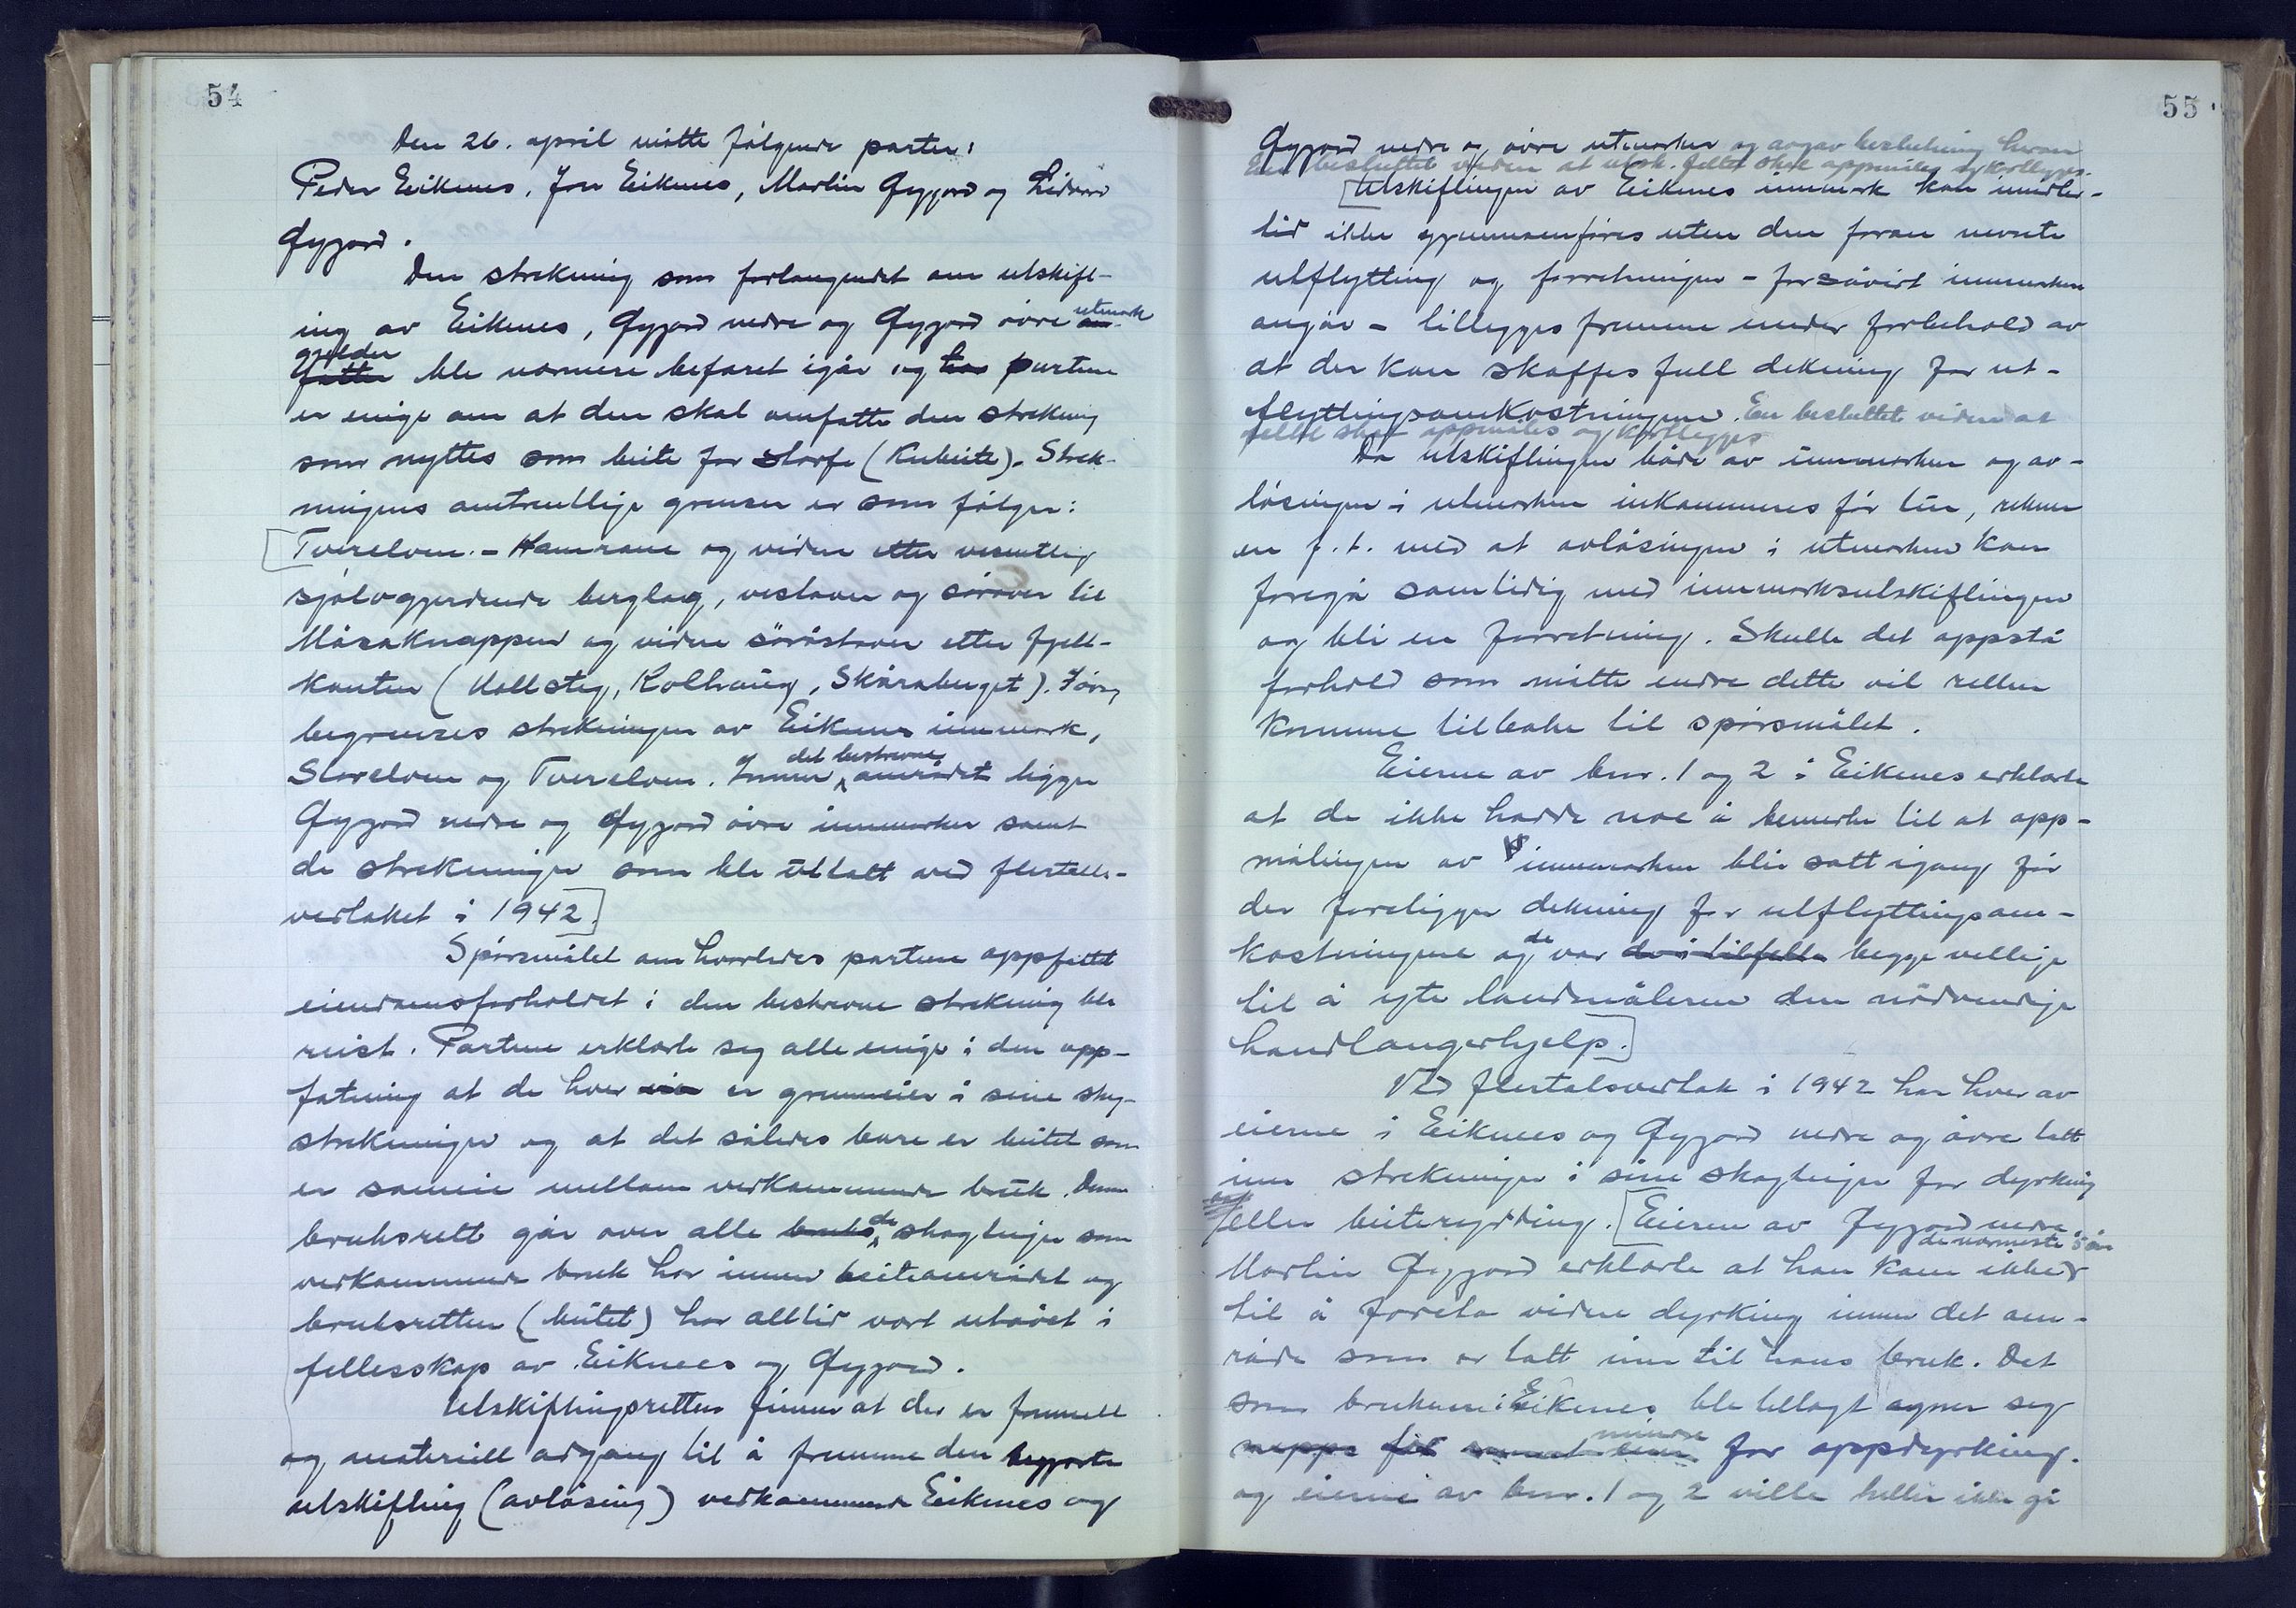 54
Den 26. april møtte følgende parter:
Peder Eiknes, Jon Eiknes, Martin Øygard og Lidvard
Øygard.
Den strekning som forlangendet om utskift-
ing av Eiknes, Øygard nedre og Øygard øvre utmark
gjelder ble nærmere befaret igår og partene
er enige om at den skal omfatte den strekning
som nyttes som beite for storfe (Kubeite). Strek-
ningens omtrentlige grenser er som følger:
Tverelven. - Hamrane og videre etter vesentlig
sjølvgjerdende berglag, vestover og sørover til
Måsaknappen og videre sørøstover etter fjell-
kanten (Kallsteg, Kolhaug, Skåraberget). Føvrig
begrenses strekningen av Eiknes innmark,
Storelven og Tverelven. Innen det beskrevne området ligger
Øygard nedre og Øygard øvre innmarker samt
de strekninger som ble uttatt ved flertalls-
vedtaket i 1942.
Spørsmålet om hvorledes partene oppfattet
eiendomsforholdet i den beskrevne strekning ble
reist. Partene erklærte seg alle enige i den opp-
fatning at de hver er grunneier i sine skog-
strekninger og at det således bare er beitet som
er sameie mellom vedkommende bruk. Denne
bruksrett går over alle de skogteiger som
vedkommende bruk har innen beiteområdet og
bruksretten (beitet) har alltid vært utøvet i
fellesskap av Eiknes og Øygard.
Utskiftingsretten finner at der er formell
og materiell adgang til å fremme den begjærte
utskifting (avløsing) vedkommende Eiknes og
55
Øygard nedre og øvre utmarker og avgav beslutning herom
En besluttet videre at utsk. feltet skal oppmåles og kartlegges.
Utskiftingen av Eiknes innmark kan imidler-
tid ikke gjennomføres uten den foran nevnte
utflytting og forretningen - forsåvidt innmarken
angår - tillegges fremme under forbehold av
at der kan skaffes full dekning for ut-
flyttingsomkostningene. En besluttet videre at
feltet skal oppmåles og kartlegges
Da utskiftingen både av innmarken og av-
løsingen i utmarken inkommeres før tur, rekner
en f.t. med at avløsingen i utmarken kan
foregå samtidig med innmarksutskiftingen
og bli en forretning. Skulle det oppstå
forhold som måtte endre dette vil retten
komme tilbake til spørsmålet.
Eierne av bnr. 1 og 2 i Eiknes erklærte
at de ikke hadde noe å bemerke til at opp-
målingen av innmarken blir satt igang før
der foreligger dekning for utflyttingsom-
kostningene og de var de i tilfelle begge villige
til å yte landmåleren den nødvendige
handlangerhjelp.
Ved flertalsvedtak i 1942 har hver av
eierne i Eiknes og Øygard nedre og øvre tatt
inn strekninger i sine skogteiger for dyrking
eller beiterydding. Eieren av Øygard nedre,
de nærmeste 5 år
Martin Øygard erklærte at han kom ikke
til å foreta videre dyrking innen det om-
råde som er tatt inn til hans bruk. Det
som brukene i Eiknes ble tillagt egner seg
neppe mindre for oppdyrking.
og eierne av bnr. 1 og 2 ville heller ikke gå